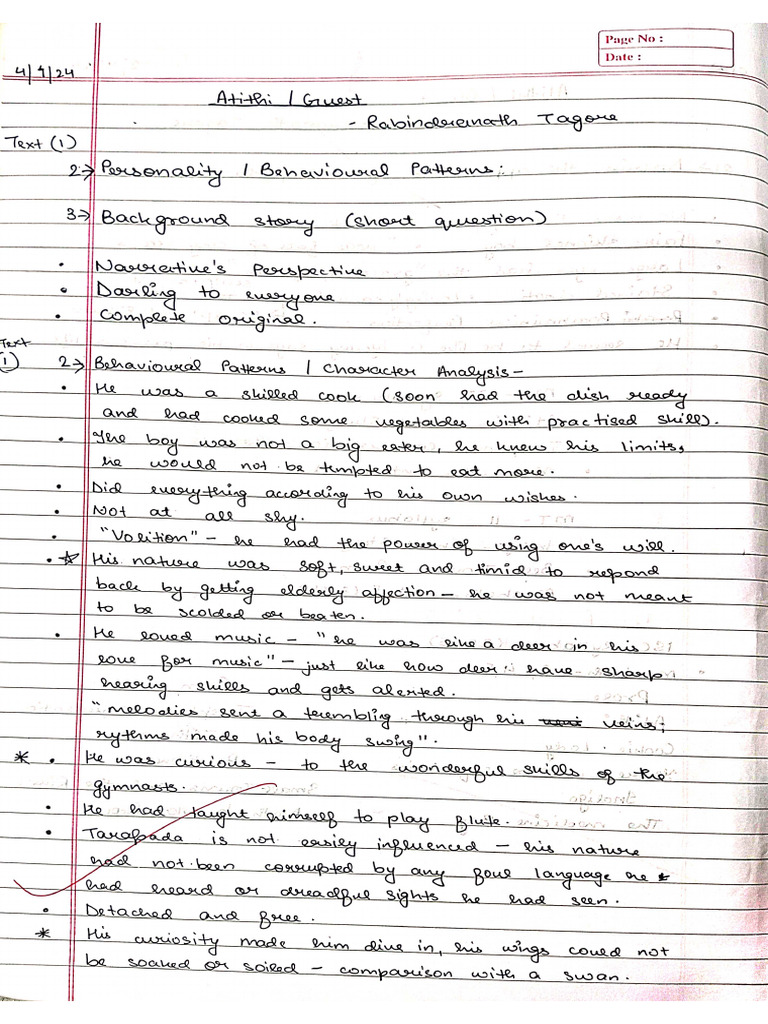 Page No :
Date :
4/9/24
Atithi / Guest
- Rabinderanath Tagore
Text (1)
2→ Personality / Behavioural Patterns:
3→ Background story (short question)
• Narrative's Perspective
• Darling to everyone
• Complete original.
Text (1) 2→ Behavioural Patterns / Character Analysis -
• He was a skilled cook (soon had the dish ready
and had cooked some vegetables with practised skill).
• The boy was not a big eater, he knew his limits,
he would not be tempted to eat more.
• Did everything according to his own wishes.
• Not at all shy.
• "Volition" - he had the power of using one's will.
• ☆ His nature was soft, sweet and timid to repond
back by getting elderly affection - he was not meant
to be scolded or beaten.
• He loved music - "he was like a deer in his
love for music" - just like how deer: have sharp
hearing skills and gets alerted.
"melodies sent a trembling through his veins;
rythms made his body swing".
* • He was curious - to the wonderful skills of the
gymnasts.
• He had taught himself to play flute.
• Tarapada is not easily influenced - his nature
had not been corrupted by any foul language he
had heard or dreadful sights he had seen.
• Detached and free.
* His curiosity made him dive in, his wings could not
be soaked or soiled - comparison with a swan.